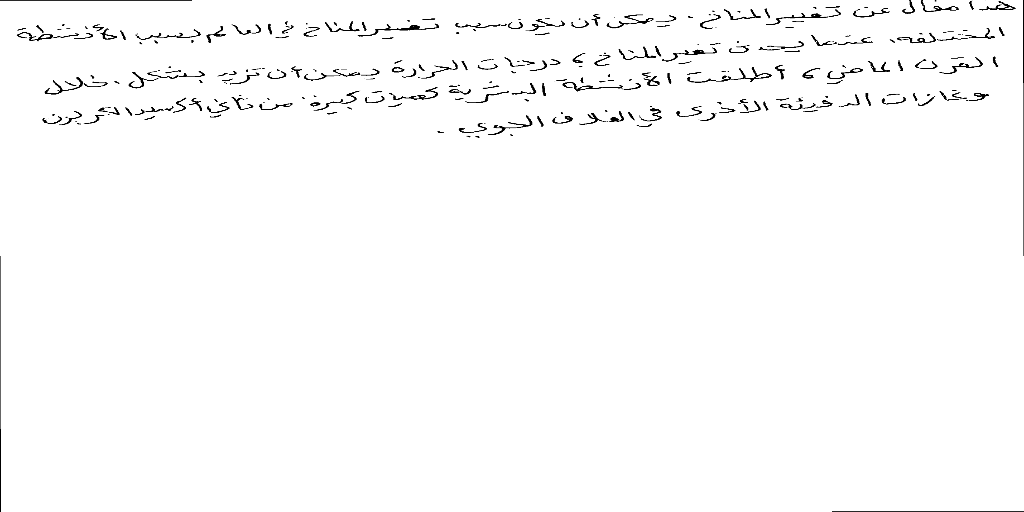 هذا مقال عن تغيير المناخ. يمكن أن يكون سبب تغيير المناخ في العالم بسبب الأنشطة
المختلفه. عندما يحدث تغير المناخ، درجات الحرارة يمكن أن تزيد بشكل. خلال
القرن الماضي، أطلقت الأنشطة البشرية كميات كبيرة من ثاني أكسيد الكربون
وغازات الدفيئة الأخرى في الغلاف الجوي.